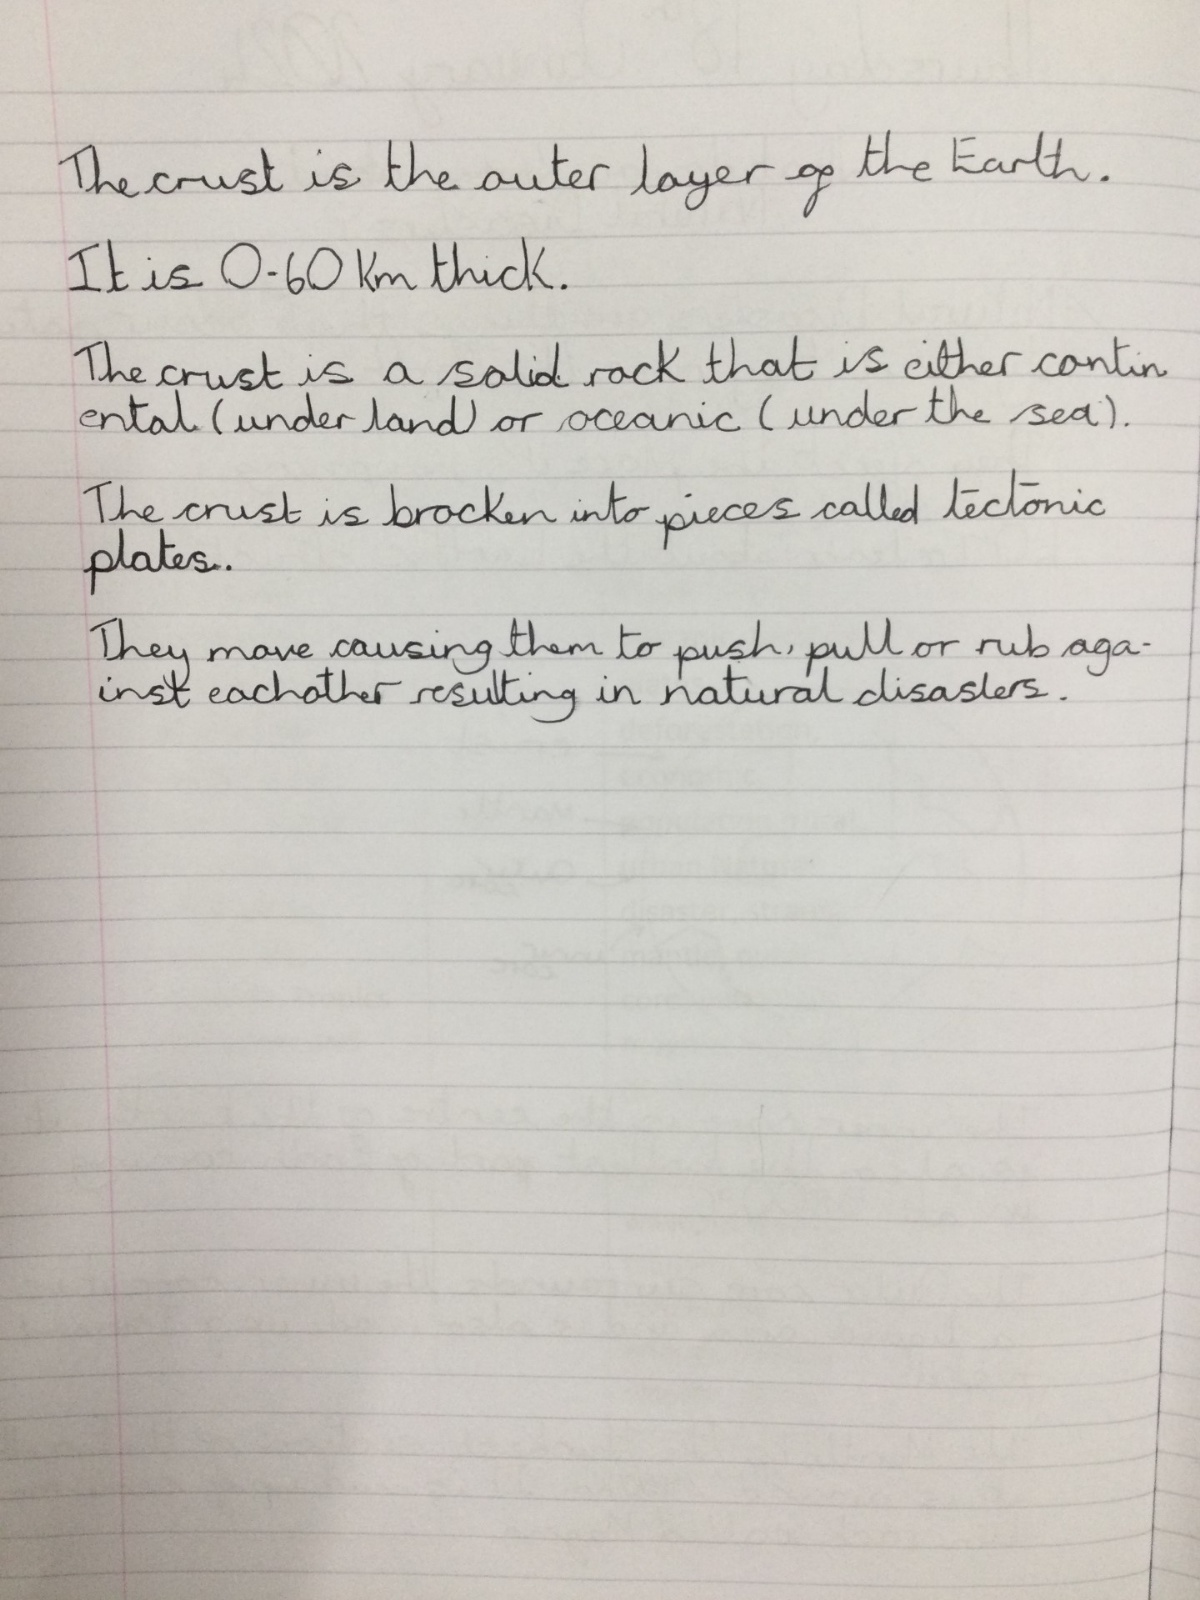 The crust is the outer layer of the Earth.
It is 0-60 Km thick.
The crust is a solid rock that is either contin
ental (under land) or oceanic (under the sea).
The crust is brocken into pieces called tectonic
plates.
They move causing them to push, pull or rub aga-
inst eachother resulting in natural disasters.